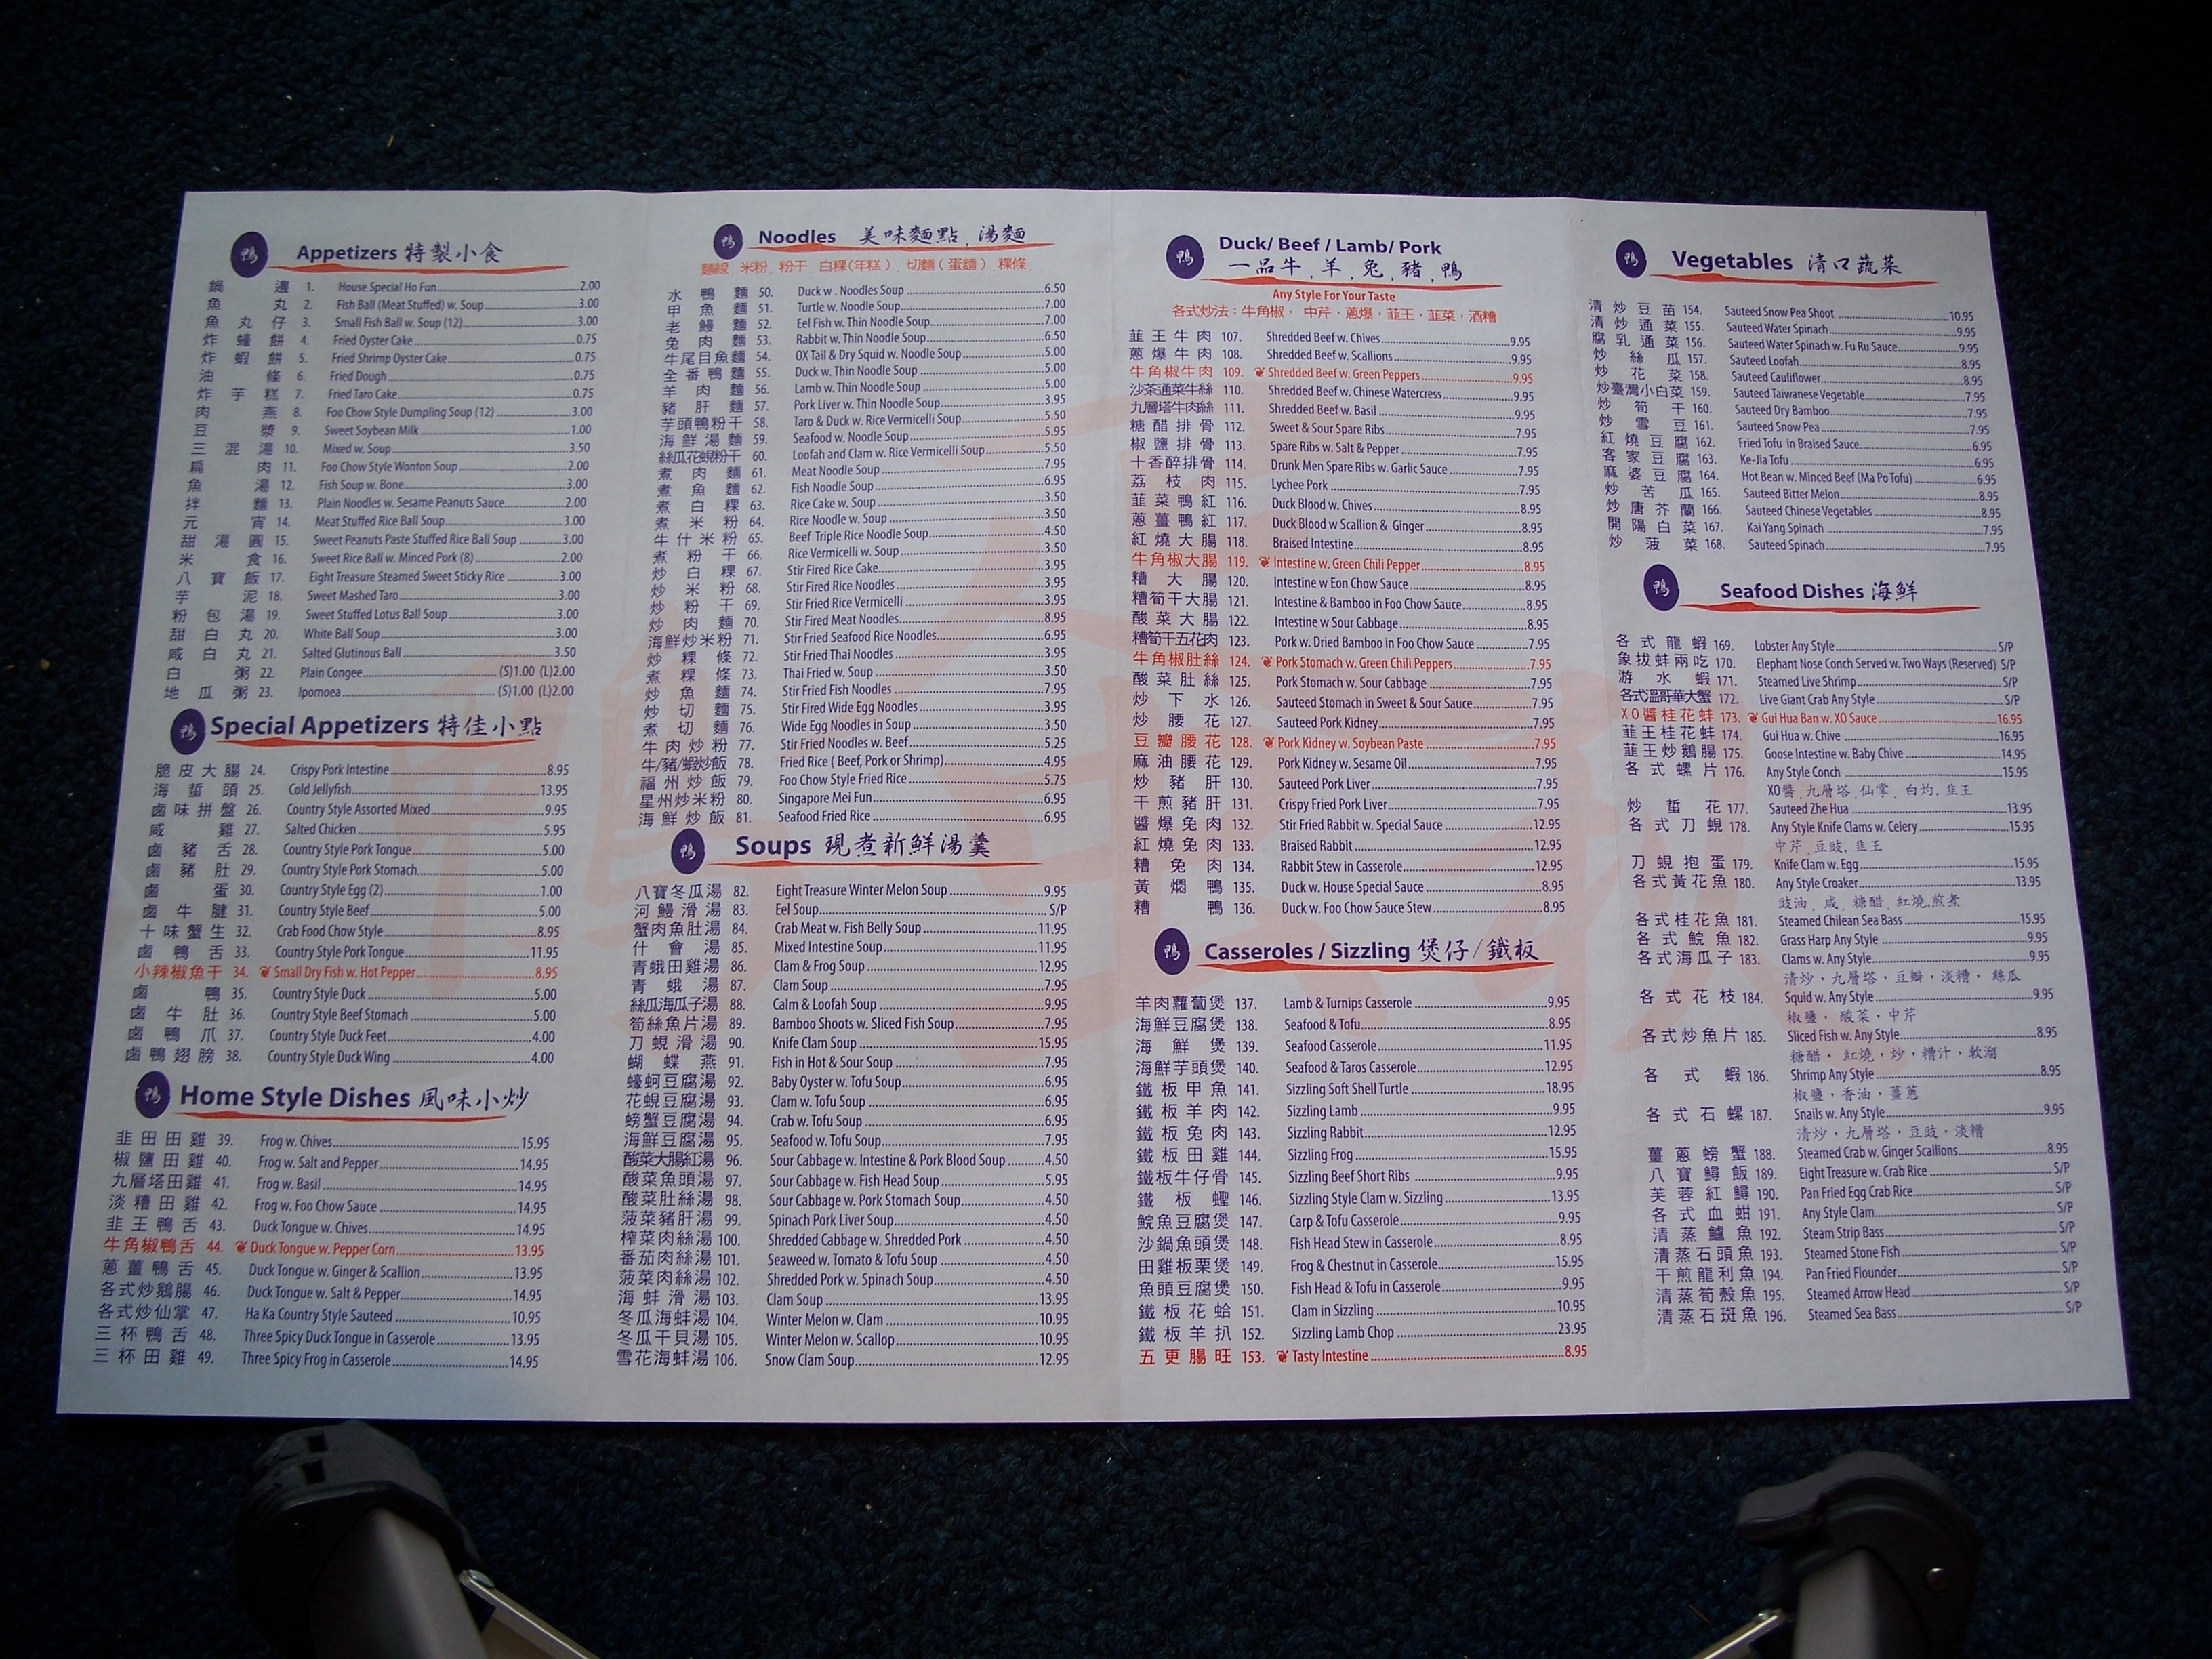 鴨
Appetizers 特製小食
鍋邊 1. House Special Ho Fun 2.00
魚丸 2. Fish Ball (Meat Stuffed) w. Soup 3.00
魚丸仔 3. Small Fish Ball w. Soup (12) 3.00
炸蠔餅 4. Fried Oyster Cake 0.75
炸蝦餅 5. Fried Shrimp Oyster Cake 0.75
油條 6. Fried Dough 0.75
炸芋糕 7. Fried Taro Cake 0.75
肉燕 8. Foo Chow Style Dumpling Soup (12) 3.00
豆漿 9. Sweet Soybean Milk 1.00
三混湯 10. Mixed w. Soup 3.50
扁肉 11. Foo Chow Style Wonton Soup 2.00
魚湯 12. Fish Soup w. Bone 3.00
拌麵 13. Plain Noodles w. Sesame Peanuts Sauce 2.00
元宵 14. Meat Stuffed Rice Ball Soup 3.00
甜湯圓 15. Sweet Peanuts Paste Stuffed Rice Ball Soup 3.00
米食 16. Sweet Rice Ball w. Minced Pork (8) 2.00
八寶飯 17. Eight Treasure Steamed Sweet Sticky Rice 3.00
芋泥 18. Sweet Mashed Taro 3.00
粉包湯 19. Sweet Stuffed Lotus Ball Soup 3.00
甜白丸 20. White Ball Soup 3.00
咸白丸 21. Salted Glutinous Ball 3.50
白粥 22. Plain Congee (S)1.00 (L)2.00
地瓜粥 23. Ipomoea (S)1.00 (L)2.00
鴨
Special Appetizers 特佳小點
脆皮大腸 24. Crispy Pork Intestine 8.95
海蜇頭 25. Cold Jellyfish 13.95
鹵味拼盤 26. Country Style Assorted Mixed 9.95
咸雞 27. Salted Chicken 5.95
鹵豬舌 28. Country Style Pork Tongue 5.00
鹵豬肚 29. Country Style Pork Stomach 5.00
鹵蛋 30. Country Style Egg (2) 1.00
鹵牛腱 31. Country Style Beef 5.00
十味蟹生 32. Crab Food Chow Style 8.95
鹵鴨舌 33. Country Style Pork Tongue 11.95
小辣椒魚干 34. Small Dry Fish w. Hot Pepper 8.95
鹵鴨 35. Country Style Duck 5.00
鹵牛肚 36. Country Style Beef Stomach 5.00
鹵鴨爪 37. Country Style Duck Feet 4.00
鹵鴨翅膀 38. Country Style Duck Wing 4.00
鴨
Home Style Dishes 風味小炒
韭田田雞 39. Frog w. Chives 15.95
椒鹽田雞 40. Frog w. Salt and Pepper 14.95
九層塔田雞 41. Frog w. Basil 14.95
淡糟田雞 42. Frog w. Foo Chow Sauce 14.95
韭王鴨舌 43. Duck Tongue w. Chives 14.95
牛角椒鴨舌 44. Duck Tongue w. Pepper Corn 13.95
蔥薑鴨舌 45. Duck Tongue w. Ginger & Scallion 13.95
各式炒鵝腸 46. Duck Tongue w. Salt & Pepper 14.95
各式炒仙掌 47. Ha Ka Country Style Sauteed 10.95
三杯鴨舌 48. Three Spicy Duck Tongue in Casserole 13.95
三杯田雞 49. Three Spicy Frog in Casserole 14.95
鴨
Noodles 美味麵點、湯麵
麵線、米粉、粉干、白粿(年糕)、切麵(蛋麵)、粿條、
水鴨麵 50. Duck w. Noodles Soup 6.50
甲魚麵 51. Turtle w. Noodle Soup 7.00
老鰻麵 52. Eel Fish w. Thin Noodle Soup 7.00
兔肉麵 53. Rabbit w. Thin Noodle Soup 6.50
牛尾目魚麵 54. OX Tail & Dry Squid w. Noodle Soup 5.00
全番鴨麵 55. Duck w. Thin Noodle Soup 5.00
羊肉麵 56. Lamb w. Thin Noodle Soup 5.00
豬肝麵 57. Pork Liver w. Thin Noodle Soup 3.95
芋頭鴨粉干 58. Taro & Duck w. Rice Vermicelli Soup 5.50
海鮮湯麵 59. Seafood w. Noodle Soup 5.95
絲瓜花蜆粉干 60. Loofah and Clam w. Rice Vermicelli Soup 5.50
煮肉麵 61. Meat Noodle Soup 7.95
煮魚麵 62. Fish Noodle Soup 6.95
煮白粿 63. Rice Cake w. Soup 3.50
煮米粉 64. Rice Noodle w. Soup 3.50
牛什米粉 65. Beef Triple Rice Noodle Soup 4.50
煮粉干 66. Rice Vermicelli w. Soup 3.50
炒白粿 67. Stir Fired Rice Cake 3.95
炒米粉 68. Stir Fired Rice Noodles 3.95
炒粉干 69. Stir Fried Rice Vermicelli 3.95
炒肉麵 70. Stir Fired Meat Noodles 8.95
海鮮炒米粉 71. Stir Fried Seafood Rice Noodles 6.95
炒粿條 72. Stir Fried Thai Noodles 3.95
煮粿條 73. Thai Fried w. Soup 3.50
炒魚麵 74. Stir Fried Fish Noodles 7.95
炒切麵 75. Stir Fired Wide Egg Noodles 3.95
煮切麵 76. Wide Egg Noodles in Soup 3.50
牛肉炒粉 77. Stir Fried Noodles w. Beef 5.25
牛/豬/蝦炒飯 78. Fried Rice ( Beef, Pork or Shrimp) 4.95
福州炒飯 79. Foo Chow Style Fried Rice 5.75
星州炒米粉 80. Singapore Mei Fun 6.95
海鮮炒飯 81. Seafood Fried Rice 6.95
鴨
Soups 現煮新鮮湯羹
八寶冬瓜湯 82. Eight Treasure Winter Melon Soup 9.95
河鰻滑湯 83. Eel Soup S/P
蟹肉魚肚湯 84. Crab Meat w. Fish Belly Soup 11.95
什會湯 85. Mixed Intestine Soup 11.95
青蛾田雞湯 86. Clam & Frog Soup 12.95
青蛾湯 87. Clam Soup 7.95
絲瓜海瓜子湯 88. Calm & Loofah Soup 9.95
筍絲魚片湯 89. Bamboo Shoots w. Sliced Fish Soup 7.95
刀蜆滑湯 90. Knife Clam Soup 15.95
蝴蝶燕 91. Fish in Hot & Sour Soup 7.95
蠔蚵豆腐湯 92. Baby Oyster w. Tofu Soup 6.95
花蜆豆腐湯 93. Clam w. Tofu Soup 6.95
螃蟹豆腐湯 94. Crab w. Tofu Soup 6.95
海鮮豆腐湯 95. Seafood w. Tofu Soup 7.95
酸菜大腸紅湯 96. Sour Cabbage w. Intestine & Pork Blood Soup 4.50
酸菜魚頭湯 97. Sour Cabbage w. Fish Head Soup 5.95
酸菜肚絲湯 98. Sour Cabbage w. Pork Stomach Soup 4.50
菠菜豬肝湯 99. Spinach Pork Liver Soup 4.50
榨菜肉絲湯 100. Shredded Cabbage w. Shredded Pork 4.50
番茄肉絲湯 101. Seaweed w. Tomato & Tofu Soup 4.50
菠菜肉絲湯 102. Shredded Pork w. Spinach Soup 4.50
海蚌滑湯 103. Clam Soup 13.95
冬瓜海蚌湯 104. Winter Melon w. Clam 10.95
冬瓜干貝湯 105. Winter Melon w. Scallop 10.95
雪花海蚌湯 106. Snow Clam Soup 12.95
鴨
Duck/ Beef / Lamb/ Pork
一品牛、羊、兔、豬、鴨
Any Style For Your Taste
各式炒法：牛角椒，中芹，蔥爆，韮王，韮菜，酒糟
韮王牛肉 107. Shredded Beef w. Chives 9.95
蔥爆牛肉 108. Shredded Beef w. Scallions 9.95
牛角椒牛肉 109. Shredded Beef w. Green Peppers 9.95
沙茶通菜牛絲 110. Shredded Beef w. Chinese Watercress 9.95
九層塔牛肉絲 111. Shredded Beef w. Basil 9.95
糖醋排骨 112. Sweet & Sour Spare Ribs 7.95
椒鹽排骨 113. Spare Ribs w. Salt & Pepper 7.95
十香醉排骨 114. Drunk Men Spare Ribs w. Garlic Sauce 7.95
荔枝肉 115. Lychee Pork 7.95
韮菜鴨紅 116. Duck Blood w. Chives 8.95
蔥薑鴨紅 117. Duck Blood w Scallion & Ginger 8.95
紅燒大腸 118. Braised Intestine 8.95
牛角椒大腸 119. Intestine w. Green Chili Pepper 8.95
糟大腸 120. Intestine w Eon Chow Sauce 8.95
糟筍干大腸 121. Intestine & Bamboo in Foo Chow Sauce 8.95
酸菜大腸 122. Intestine w Sour Cabbage 8.95
糟筍干五花肉 123. Pork w. Dried Bamboo in Foo Chow Sauce 7.95
牛角椒肚絲 124. Pork Stomach w. Green Chili Peppers 7.95
酸菜肚絲 125. Pork Stomach w. Sour Cabbage 7.95
炒下水 126. Sauteed Stomach in Sweet & Sour Sauce 7.95
炒腰花 127. Sauteed Pork Kidney 7.95
豆瓣腰花 128. Pork Kidney w. Soybean Paste 7.95
麻油腰花 129. Pork Kidney w. Sesame Oil 7.95
炒豬肝 130. Sauteed Pork Liver 7.95
干煎豬肝 131. Crispy Fried Pork Liver 7.95
醬爆兔肉 132. Stir Fried Rabbit w. Special Sauce 12.95
紅燒兔肉 133. Braised Rabbit 12.95
糟兔肉 134. Rabbit Stew in Casserole 12.95
黃燜鴨 135. Duck w. House Special Sauce 8.95
糟鴨 136. Duck w. Foo Chow Sauce Stew 8.95
鴨
Casseroles / Sizzling 煲仔/鐵板
羊肉蘿蔔煲 137. Lamb & Turnips Casserole 9.95
海鮮豆腐煲 138. Seafood & Tofu 8.95
海鮮煲 139. Seafood Casserole 11.95
海鮮芋頭煲 140. Seafood & Taros Casserole 12.95
鐵板甲魚 141. Sizzling Soft Shell Turtle 18.95
鐵板羊肉 142. Sizzling Lamb 9.95
鐵板兔肉 143. Sizzling Rabbit 12.95
鐵板田雞 144. Sizzling Frog 15.95
鐵板牛仔骨 145. Sizzling Beef Short Ribs 9.95
鐵板蟶 146. Sizzling Style Clam w. Sizzling 13.95
鯇魚豆腐煲 147. Carp & Tofu Casserole 9.95
沙鍋魚頭煲 148. Fish Head Stew in Casserole 8.95
田雞板栗煲 149. Frog & Chestnut in Casserole 15.95
魚頭豆腐煲 150. Fish Head & Tofu in Casserole 9.95
鐵板花蛤 151. Clam in Sizzling 10.95
鐵板羊扒 152. Sizzling Lamb Chop 23.95
五更腸旺 153. Tasty Intestine 8.95
鴨
Vegetables 清口蔬菜
清炒豆苗 154. Sauteed Snow Pea Shoot 10.95
清炒通菜 155. Sauteed Water Spinach 9.95
腐乳通菜 156. Sauteed Water Spinach w. Fu Ru Sauce 9.95
炒絲瓜 157. Sauteed Loofah 8.95
炒花菜 158. Sauteed Cauliflower 8.95
炒臺灣小白菜 159. Sauteed Taiwanese Vegetable 7.95
炒筍干 160. Sauteed Dry Bamboo 7.95
炒雪豆 161. Sauteed Snow Pea 7.95
紅燒豆腐 162. Fried Tofu in Braised Sauce 6.95
客家豆腐 163. Ke-Jia Tofu 6.95
麻婆豆腐 164. Hot Bean w. Minced Beef (Ma Po Tofu) 6.95
炒苦瓜 165. Sauteed Bitter Melon 8.95
炒唐芥蘭 166. Sauteed Chinese Vegetables 8.95
開陽白菜 167. Kai Yang Spinach 7.95
炒菠菜 168. Sauteed Spinach 7.95
鴨
Seafood Dishes 海鮮
各式龍蝦 169. Lobster Any Style S/P
象拔蚌兩吃 170. Elephant Nose Conch Served w. Two Ways (Reserved) S/P
游水蝦 171. Steamed Live Shrimp S/P
各式溫哥華大蟹 172. Live Giant Crab Any Style S/P
XO醬桂花蚌 173. Gui Hua Ban w. XO Sauce 16.95
韮王桂花蚌 174. Gui Hua w. Chive 16.95
韮王炒鵝腸 175. Goose Intestine w. Baby Chive 14.95
各式螺片 176. Any Style Conch 15.95
XO醬、九層塔、仙掌、白灼、韭王
炒蜇花 177. Sauteed Zhe Hua 13.95
各式刀蜆 178. Any Style Knife Clams w. Celery 15.95
中芹、豆豉、韭王
刀蜆抱蛋 179. Knife Clam w. Egg 15.95
各式黃花魚 180. Any Style Croaker 13.95
豉油、咸、糖醋、紅燒、煎煮
各式桂花魚 181. Steamed Chilean Sea Bass 15.95
各式鯇魚 182. Grass Harp Any Style 9.95
各式海瓜子 183. Clams w. Any Style 9.95
清炒，九層塔，豆瓣，淡糟，絲瓜
各式花枝 184. Squid w. Any Style 9.95
椒鹽，酸菜，中芹
各式炒魚片 185. Sliced Fish w. Any Style 8.95
糖醋，紅燒，炒，糟汁，軟溜
各式蝦 186. Shrimp Any Style 8.95
椒鹽，香油，薑蔥
各式石螺 187. Snails w. Any Style 9.95
清炒，九層塔，豆豉，淡糟
薑蔥螃蟹 188. Steamed Crab w. Ginger Scallions 8.95
八寶蟳飯 189. Eight Treasure w. Crab Rice S/P
芙蓉紅蟳 190. Pan Fried Egg Crab Rice S/P
各式血蚶 191. Any Style Clam S/P
清蒸鱸魚 192. Steam Strip Bass S/P
清蒸石頭魚 193. Steamed Stone Fish S/P
干煎龍利魚 194. Pan Fried Flounder S/P
清蒸筍殼魚 195. Steamed Arrow Head S/P
清蒸石斑魚 196. Steamed Sea Bass S/P